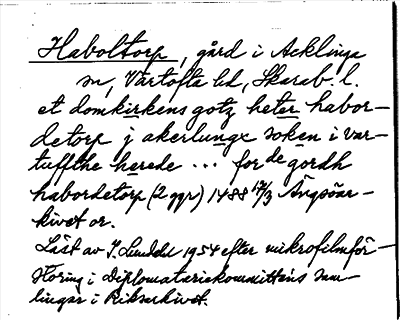 Haboltorp, gård i Acklinga
sn, Vartofta hd, Skarab. l.
et domkirkens gotz heter habor-
detorp j akerlunge soken i var-
tuffthe herede ... forde gordh
habordetorp (2 ggr) 1488 17/3 Ängsöar-
kivet or.
Läst av I. Lundahl 1954 efter mikrofilmför-
ing i Diplomatariekommitténs sam-
lingar i Riksarkivet.